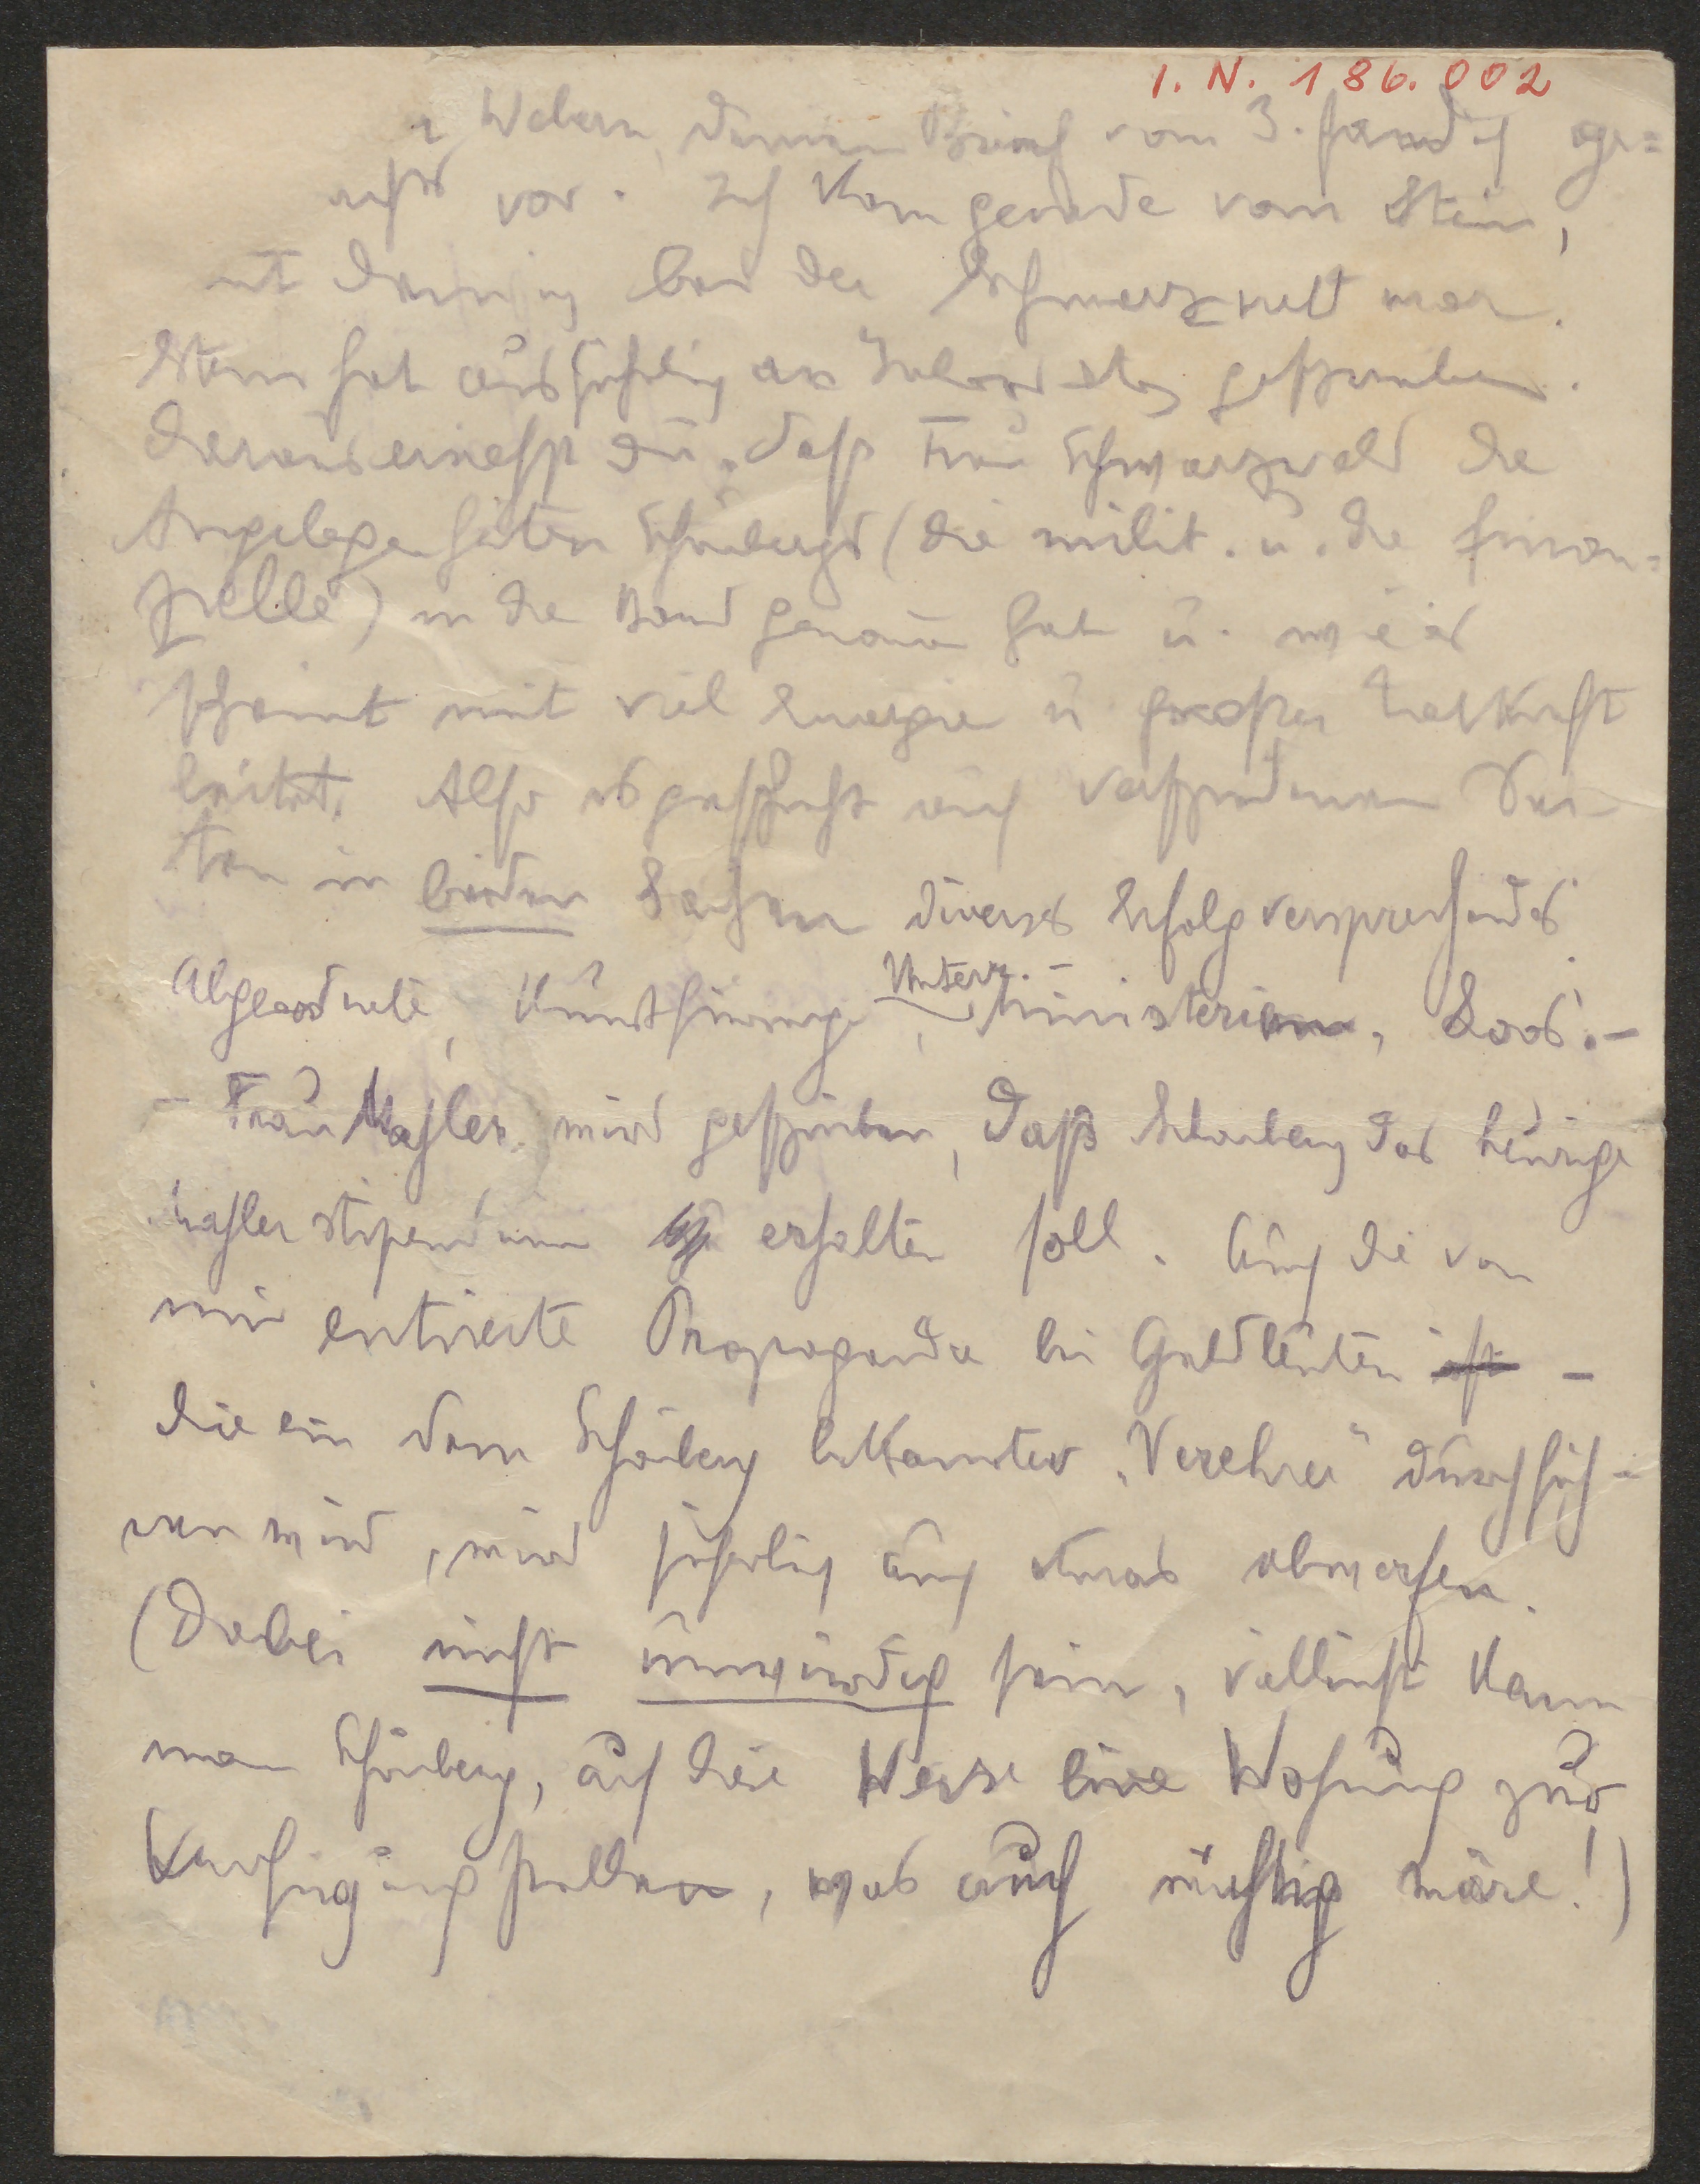 I. N. 186.002
Webern, Deinen Brief vom 3. fand ich ge=
vor. Ich kom gerade vom Stein,
mit dem ich bei der Schwarzwald war.
Stein hat ausführlich an geschrieben.
Daraus ersiehst Du, dass Frau Schwarzwald die
Angelegenheiten Schönbergs (die milit. u. die finan=
zielle) in die Hand genom̄en hat u. wie es
scheint mit viel Energie u. großer Tatkraft
leitet. Also es geschieht auf verschiedenen Sei-
ten in beiden Sachen diverses Erfolgversprechendes
Abgeordnete, Kunstfürsorge, Unterr.-Ministerium, Loos.-
- Frau Mahler wird geschrieben, dass Schönberg das heurige
Mahlerstipendium erhalten soll. Auch die von
mir entrierte Propaganda bei Geldleuten ist -
die ein dem Schönberg bekannter „Verehrer" durchfüh-
ren wird, wird sicherlich auch etwas abwerfen.
(Dabei nicht unwürdig sein, vielleicht kann
man Schönberg, auf diese Weise eine Wohnung zur
Verfügung stellen, was auch wichtig wäre!)